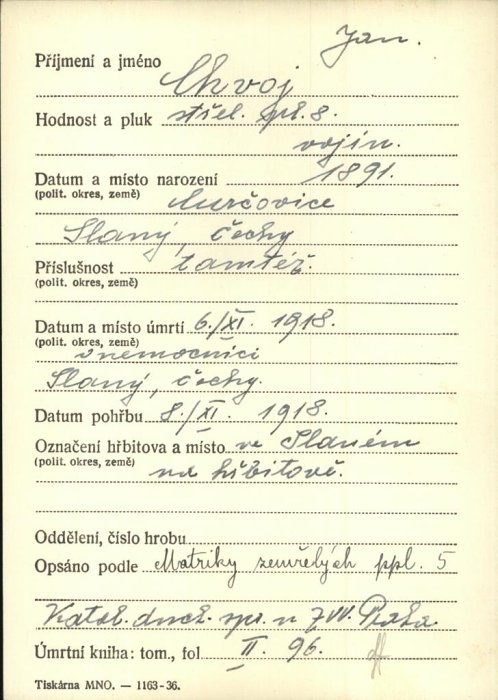 Jan.
Příjmení a jméno Chvoj
Hodnost a pluk střel. pl. 8.
vojín.
Datum a místo narození 1891.
(polit. okres, země)
Slaný, Čechy
Příslušnost tamtéž.
(polit. okres, země)
Datum a místo úmrtí 6./XI. 1918.
(polit. okres, země) v nemocnici
Slaný, Čechy.
Datum pohřbu 8./XI. 1918.
Označení hřbitova a místo ve Slaném
(polit. okres, země) na hřbitově.
Oddělení, číslo hrobu
Opsáno podle Matriky zemřelých ppl. 5
Katol. duch. spr. u ZVV. Praha
Úmrtní kniha: tom., fol. II. 96.
Tiskárna MNO. — 1163-36.